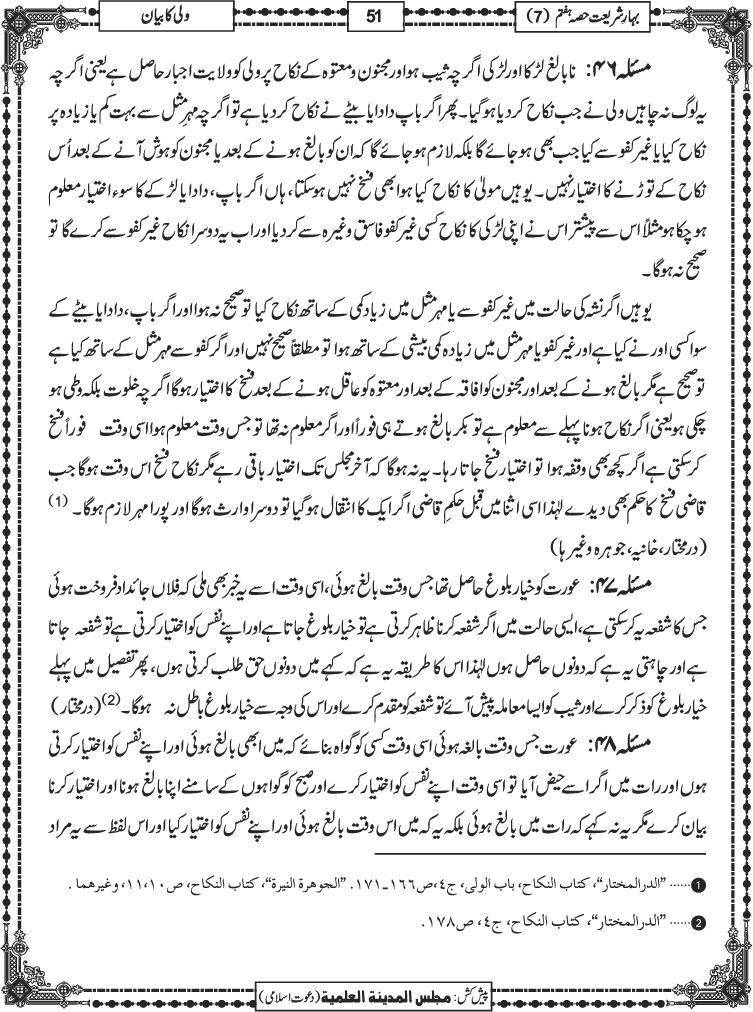 بہارِ شریعت حصہ ہفتم (7)
51
ولی کا بیان
مسئلہ ۴۶: نابالغ لڑکا اور لڑکی اگرچہ ثیب ہو اور مجنون و معتوہ کے نکاح پر ولی کو ولایت اجبار حاصل ہے یعنی اگرچہ
یہ لوگ نہ چاہیں ولی نے جب نکاح کر دیا ہوگیا۔ پھر اگر باپ دادا یا بیٹے نے نکاح کر دیا ہے تو اگرچہ مہر مثل سے بہت کم یا زیادہ پر
نکاح کیا یا غیر کفو سے کیا جب بھی ہو جائے گا بلکہ لازم ہو جائے گا کہ ان کو بالغ ہونے کے بعد یا مجنون کو ہوش آنے کے بعد اُس
نکاح کے توڑنے کا اختیار نہیں۔ یوہیں مولیٰ کا نکاح کیا ہوا بھی فسخ نہیں ہوسکتا، ہاں اگر باپ، دادا یا لڑکے کا سوء اختیار معلوم
ہو چکا ہو مثلاً اس سے پیشتر اس نے اپنی لڑکی کا نکاح کسی غیر کفو فاسق وغیرہ سے کر دیا اور اب یہ دوسرا نکاح غیر کفو سے کرے گا تو
صحیح نہ ہوگا۔
یوہیں اگر نشہ کی حالت میں غیر کفو سے یا مہر مثل میں زیادہ کمی کے ساتھ نکاح کیا تو صحیح نہ ہوا اور اگر باپ، دادا یا بیٹے کے
سوا کسی اور نے کیا ہے اور غیر کفو یا مہر مثل میں زیادہ کمی بیشی کے ساتھ ہوا تو مطلقاً صحیح نہیں اور اگر کفو سے مہر مثل کے ساتھ کیا ہے
تو صحیح ہے مگر بالغ ہونے کے بعد اور مجنون کو افاقہ کے بعد اور معتوہ کو عاقل ہونے کے بعد فسخ کا اختیار ہوگا اگرچہ خلوت بلکہ وطی ہو
چکی ہو یعنی اگر نکاح ہونا پہلے سے معلوم ہے تو بکر بالغ ہوتے ہی فوراً اور اگر معلوم نہ تھا تو جس وقت معلوم ہوا اسی وقت فوراً فسخ
کرسکتی ہے اگر کچھ بھی وقفہ ہوا تو اختیار فسخ جاتا رہا۔ یہ نہ ہوگا کہ آخر مجلس تک اختیار باقی رہے مگر نکاح فسخ اس وقت ہوگا جب
قاضی فسخ کا حکم بھی دیدے لہٰذا اسی اثنا میں قبل حکمِ قاضی اگر ایک کا انتقال ہوگیا تو دوسرا وارث ہوگا اور پورا مہر لازم ہوگا۔ (1)
(درمختار، خانیہ، جوہرہ وغیرہا)
مسئلہ ۴۷: عورت کو خیار بلوغ حاصل تھا جس وقت بالغ ہوئی، اسی وقت اسے یہ خبر بھی ملی کہ فلاں جائداد فروخت ہوئی
جس کا شفعہ یہ کرسکتی ہے، ایسی حالت میں اگر شفعہ کرنا ظاہر کرتی ہے تو خیار بلوغ جاتا ہے اور اپنے نفس کو اختیار کرتی ہے تو شفعہ جاتا
ہے اور چاہتی یہ ہے کہ دونوں حاصل ہوں لہٰذا اس کا طریقہ یہ ہے کہ کہے میں دونوں حق طلب کرتی ہوں، پھر تفصیل میں پہلے
خیار بلوغ کو ذکر کرے اور ثیب کو ایسا معاملہ پیش آئے تو شفعہ کو مقدم کرے اور اس کی وجہ سے خیار بلوغ باطل نہ ہوگا۔ (2) (درمختار)
مسئلہ ۴۸: عورت جس وقت بالغہ ہوئی اسی وقت کسی کو گواہ بنائے کہ میں ابھی بالغ ہوئی اور اپنے نفس کو اختیار کرتی
ہوں اور رات میں اگر اسے حیض آیا تو اسی وقت اپنے نفس کو اختیار کرے اور صبح کو گواہوں کے سامنے اپنا بالغ ہونا اور اختیار کرنا
بیان کرے مگر یہ نہ کہے کہ رات میں بالغ ہوئی بلکہ یہ کہ میں اس وقت بالغ ہوئی اور اپنے نفس کو اختیار کیا اور اس لفظ سے یہ مراد
1 ...... "الدرالمختار"، کتاب النکاح، باب الولی، ج٤،ص١٦٦ـ١٧١. "الجوھرة النیرة"، کتاب النکاح، ص١١،١٠، وغیرھما .
2 ...... "الدرالمختار"، کتاب النکاح، ج٤، ص١٧٨.
پیش کش: مجلس المدینۃ العلمیۃ (دعوتِ اسلامی)